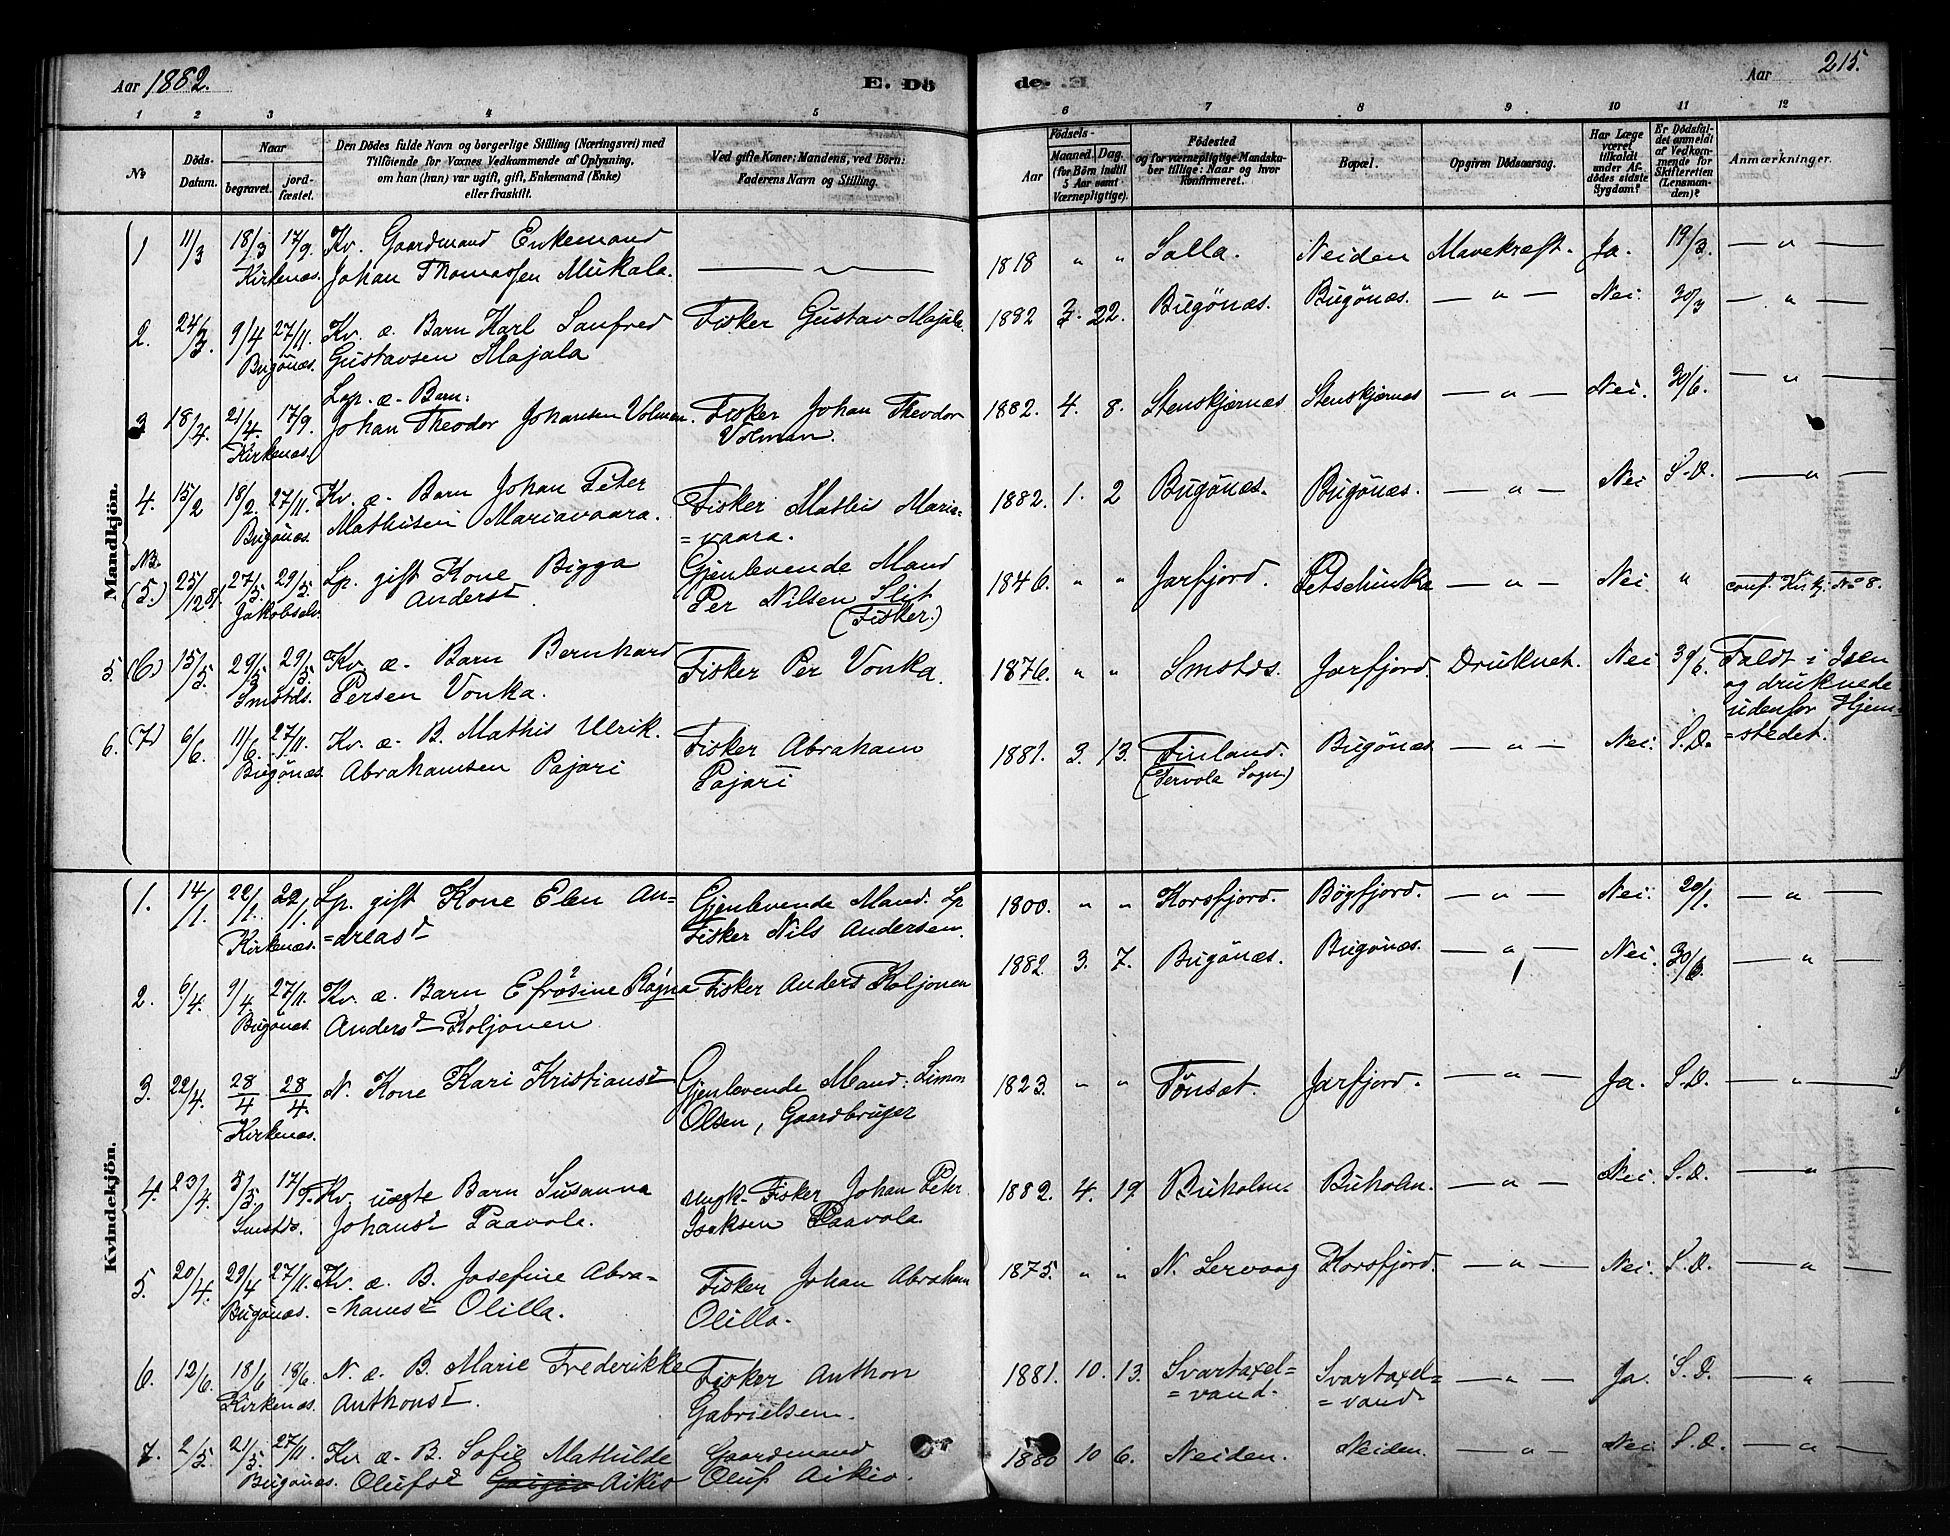 Aar 1882.
E. Dö
de. E.
Aar
215.
1 2 3 4 5 6 7 8 9 10 11 12
No
Döds-
Datum.
Naar
begravet.
jord-
fæstet.
Den Dödes fulde Navn og borgerlige Stilling (Næringsvei) med
Tilföiende for Voxnes Vedkommende af Oplysning,
om han (hun) var ugift, gift, Enkemand (Enke)
eller fraskilt.
Ved gifte Koner: Mandens, ved Börn:
Faderens Navn og Stilling.
Födsels-
Aar
Maaned. Dag.
(for Börn indtil
5 Aar samt
Værnepligtige).
Födested
og for værnepligtige Mandska-
ber tillige: Naar og hvor
konfirmeret.
Bopæl.
Opgiven Dödsaarsag.
Har Læge
været
tilkaldt
under Af-
dödes sidste
Sygdom?
Er Dödsfal-
det anmeldt
af Vedkom-
mende for
Skifteretten
(Lensman-
den)?
Anmærkninger.
Mandkjön.
1 11/3 18/3 17/9. Kv. Gaardmand Enkemand
Kirkenæs. Johan Thomassen Mukala.
1818 " " Salla. Neiden Mavekræft. Ja. 19/3. — " —
2. 24/3. 9/4 27/11. Kv. æ. Barn Karl Sanfred Fisker Gustav Majala
Bugönæs. Gustavsen Majala
1882 3. 22. Bugönæs. Bugönæs. — " — Nei. 30/3 — " —
Lap. æ. Barn:
3 18/4. 21/4. 17/9. Johan Theodor Johansen Volman. Fisker Johan Theodor
Kirkenæs. Volman.
1882. 4. 8. Stenskjærnæs Stenskjærnæs — " — Nei. 30/6. — " —
4. 15/2 18/2. 27/11. Kv. æ. Barn Johan Peter Fisker Mathis Maria=
Bugönæs. Mathisen Mariavaara. =vaara.
1882. 1. 2 Bugönæs. Bugönæs. — " — Nei S.D. — " —
NB.
(5.) 25/12 81. 27/5. 29/5. Lp. gift Kone Bigga Gjenlevende Mand
Jakobselv Andersd Per Nilsen Slit
(Fisker.)
1846. " " Jarfjord. Petschinka — " — Nei " conf. Kv. kj. No 8.
5 (6) 15/5. 29/5 29/5. Kv. æ. Barn Bernhard Fisker Per Vonka.
Smstds. Persen Vonka.
1876. " " Smstds. Jarfjord. Druknet. Nei Faldt i Isen
og druknede
udenfor Hjem=
=stedet.
6. (7) 6/6. 11/6. 27/11. Kv. æ. B. Mathis Ulrik. Fisker Abraham
Bugönæs. Abrahamsen Pajari Pajari
1881. 3. 13. Finland. Bugönæs — " — Nei. S.D.
(Tervola Sogn)
Kvindekjön.
1. 14/1. 22/1. 22/1. Lp. gift Kone Elen An= Gjenlevende Mand. Lp
Kirkenæs. =dreasd Fisker Nils Andersen.
1800. " " Korsfjord. Bögfjord. — " — Nei. 20/1. — " —
2. 6/4. 9/4 27/11. Kv. æ. Barn Efrosine Ragna Fisker Anders Koljonen
Bugönæs. Andersd Koljonen
1882. 3. 7. Bugönæs. Bugönæs. — " — Nei. 30/6. — " —
3. 22/4. 28/4 28/4. N. Kone Kari Kristiansd Gjenlevende Mand: Simon
Kirkenæs. Olsen, Gaardbruger
1823. " " Tönset. Jarfjord. — " — Ja. S.D. — " —
4. 23/4. 3/5. 17/9. Kv. uægte Barn Susanna ungk. Fisker Johan Peter
Smstds. Johansd Paavola. Isaksen Paavola.
1882. 4. 19. Buholm Buholm. — " — Nei. S.D. — " —
5. 20/4. 29/4 27/11. Kv. æ. B. Josefine Abra= Fisker Johan Abraham
Bugönæs. =hamsd Olilla. Olilla.
1875. " " N. Lervaag Korsfjord. — " — Nei. S.D. — " —
6. 12/6. 18/6 18/6. N. æ. B. Marie Frederikke Fisker Anthon
Kirkenæs. Anthonsd. Gabrielsen.
1881. 10. 13. Svartaxel= Svartaxel= — " — Ja. S.D. — " —
=vand. =vand.
7. 2/5. 21/5. 27/11. Kv. æ. B. Sofie Mathilde Gaardmand
Bugönæs. Olufsd Aikio Oluf Aikio.
1880 10 6. Neiden. Neiden. — " — Nei. S.D. — " —